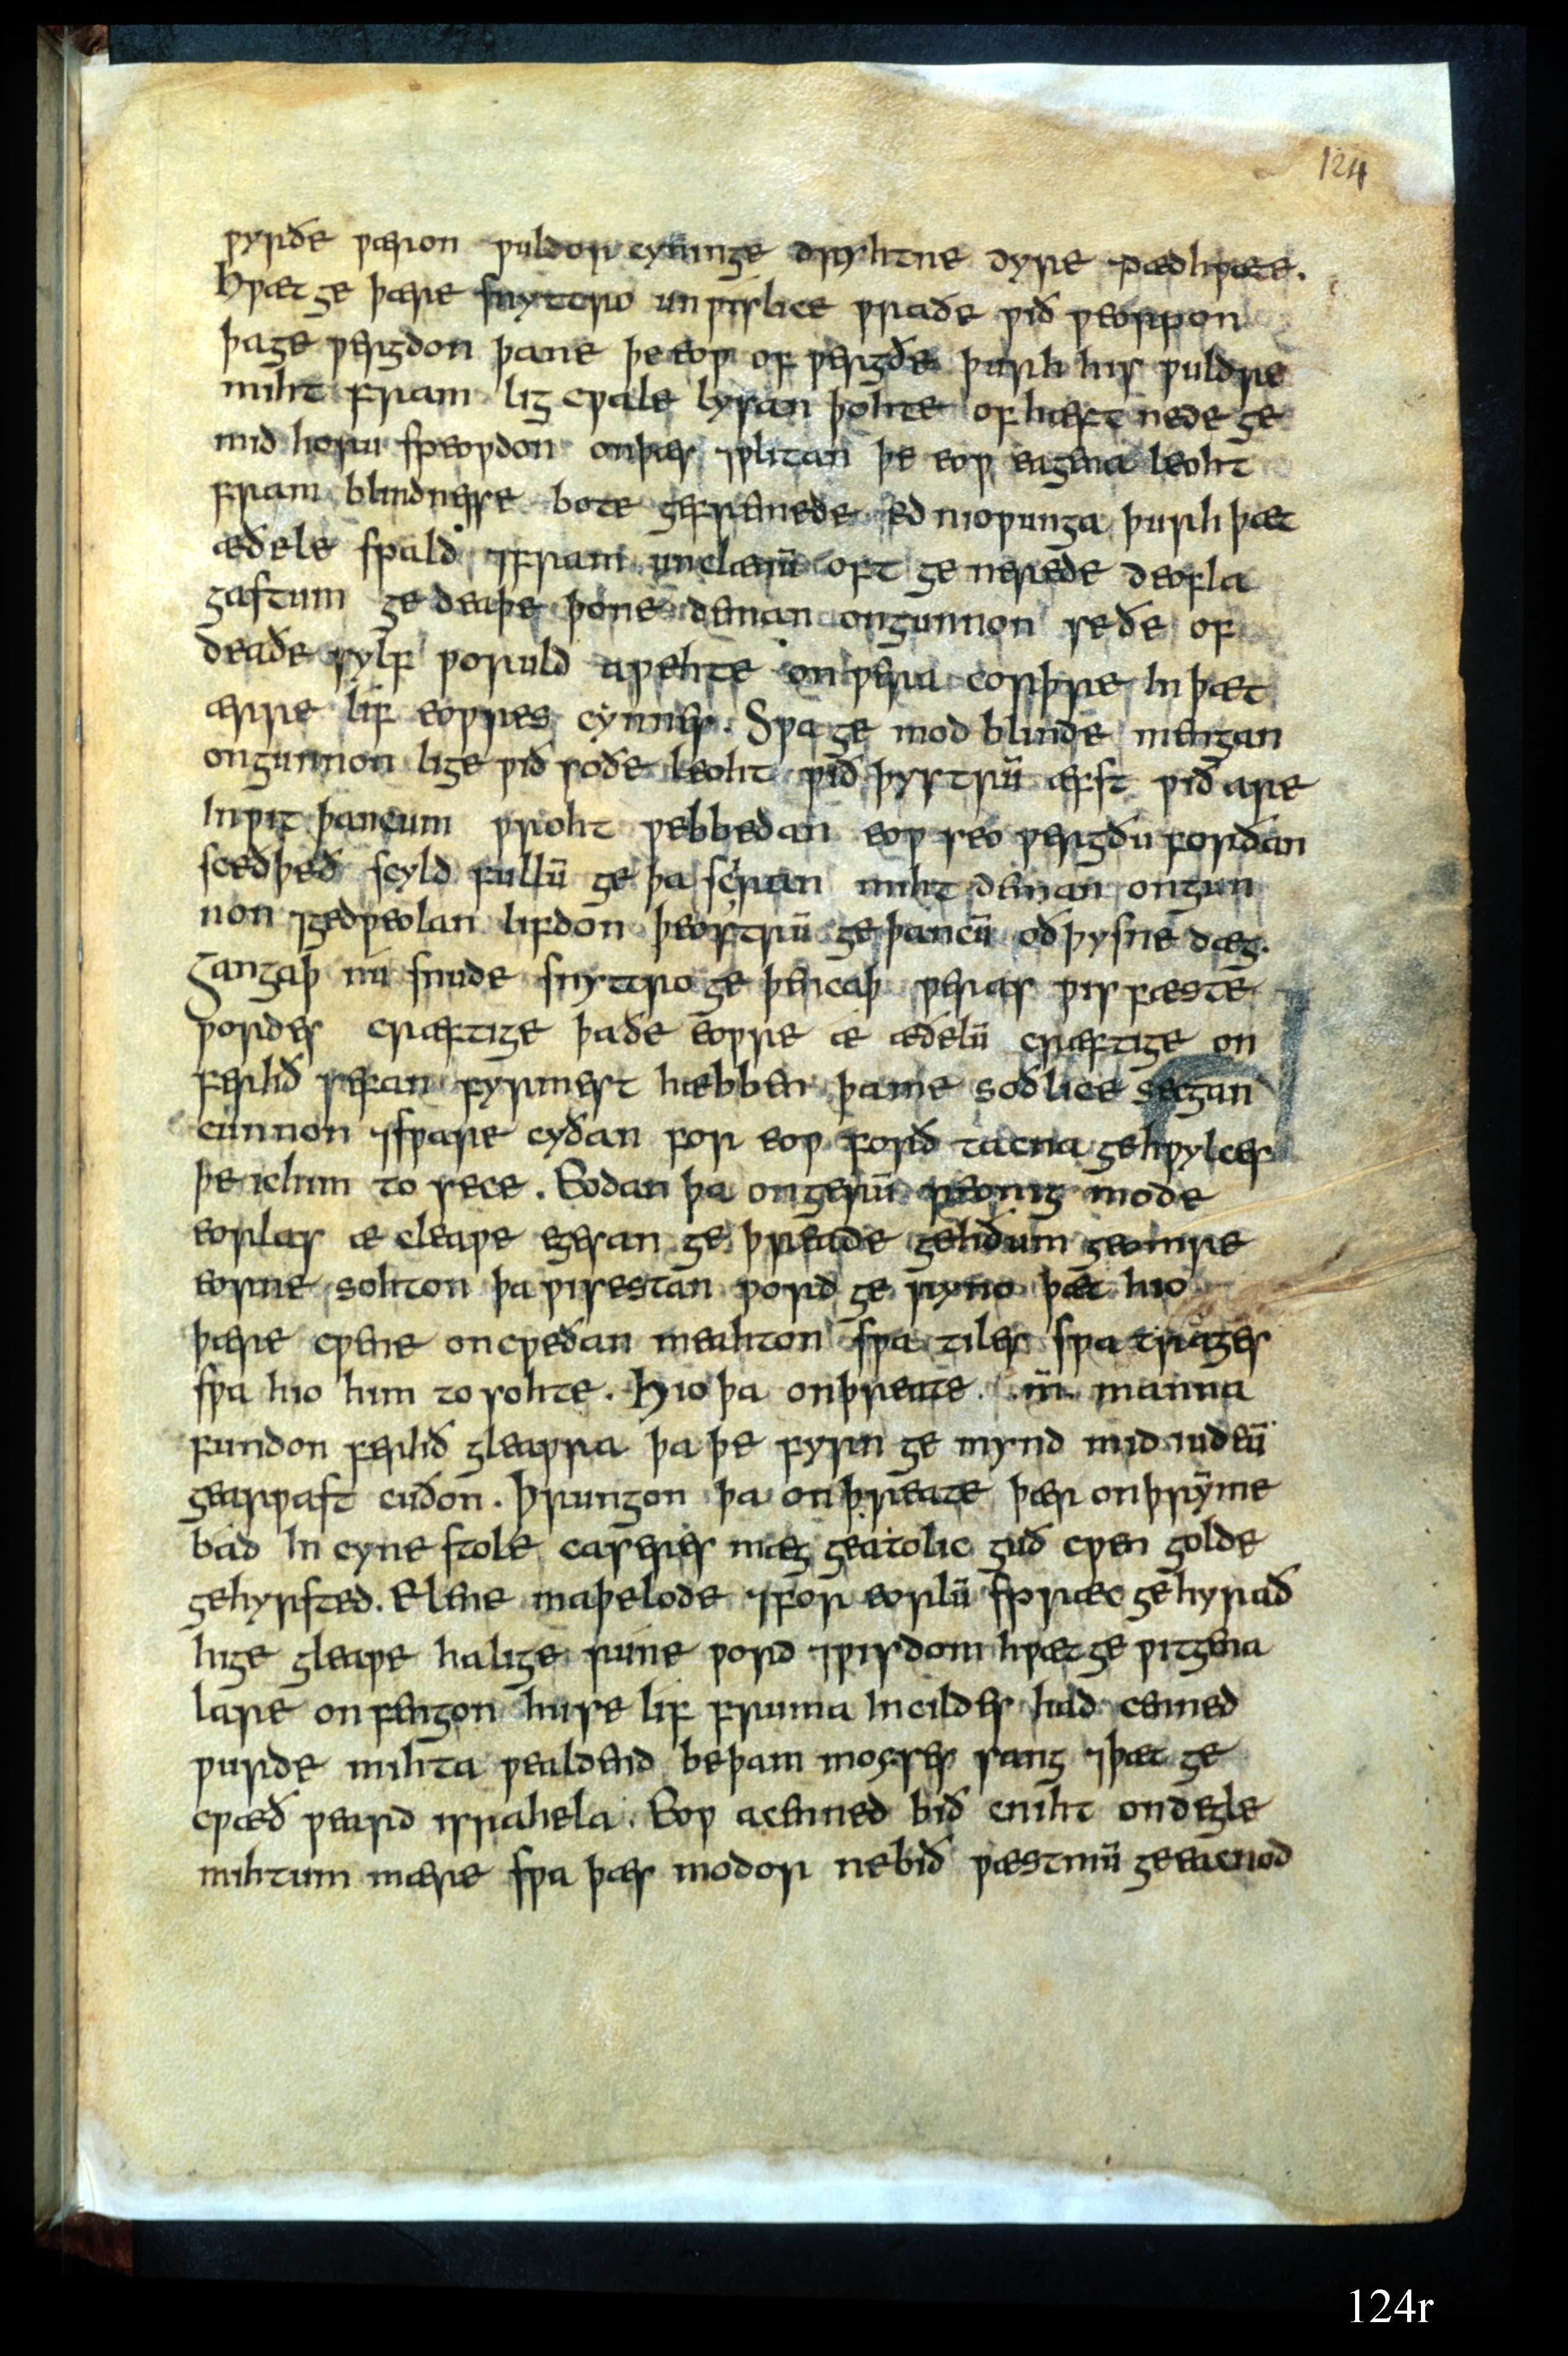 124
ƿyrðe ƿæron ƿuldorcyninge dryhtne dyre ⁊dædhƿæte.
Hƿæt ge þære snyttro unƿislice ƿraðe ƿið ƿeorpon
þage ƿergdon þane þe eoƿ of ƿergðe þurh his ƿuldres
miht fram ligcƿale lysan þohte of hæft nede ge
mid horu speoƿdon onþæs ⁊ƿlitan þe eoƿ eagena leoht
fram blindnesse bote gefremede ednioƿunga þurh þæt
æðele spald ⁊fram unclænū oft ge nerede deofla
gastum ge deaþe þone deman ongunnon se ðe of
deaðe sylf ƿoruld aƿehte onƿera corþre in þæt
ærre lif eoƿres cynnes. Sƿa ge modblinde mengan
ongunnon lige ƿið soðe leoht ƿið þystrū æfst ƿið are
inƿit þancum ƿroht ƿebbedan eoƿ seo ƿergðu forðan
sceðþeð scyldfullū ge þa sciran miht deman ongun
non ⁊gedƿeolan lifdon þeostrū geþancū oð þysne dæg.
Gangaþ nu snude snyttro geþencaþ ƿeras ƿisfæste
ƿordes cræftige þaðe eoƿre æ æðelū cræftige on
ferhð sefan fyrmest hæbben þame soðlice secgan
cunnon ⁊sƿare cyðan for eoƿ forð tacna gehƿylces
þe ichim to sece. Eodan þa ongerū reonig mode
eorlas æcleaƿe egesan geþreade gehðum geomre
eorne sohton þa ƿisestan ƿord geryno þæt hio
þære cƿene oncƿeðan meahton sƿa tiles sƿa trages
sƿa hio him to sohte. Hio þa onþreate .m̄. manna
fundon ferhð gleaƿra þa þe fyrn gemynd mid iudeū
gearƿast cuðon. Þrungon þa onþreate þær onþrymme
bad in cynestole caseres mæg geatolic guð cƿen golde
gehyrsted. Elene maþelode ⁊for eorlū spræc gehyrað
hige gleaƿe halige rune ƿord ⁊ƿisdom hƿæt ge ƿitgena
lare onfengon huse lif fruma in cildes had cenned
ƿurde mihta ƿealdend beþam moyses sang ⁊þæt ge
cƿæð ƿeard israhela. Eoƿ acenned bið cniht on degle
mihtum mære sƿa þæs modor ne bið ƿæstmū geeacnod
124r